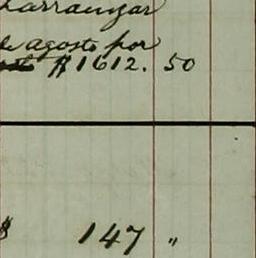 Larranzar
de agosto por
$1612. 50
$ 147 "